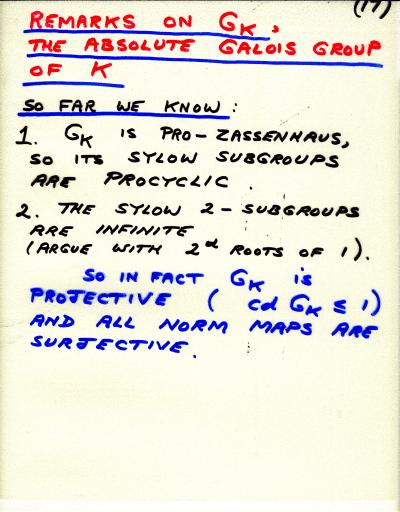 (17)
REMARKS ON G_K,
THE ABSOLUTE GALOIS GROUP
OF K
SO FAR WE KNOW:
1. G_K IS PRO-ZASSENHAUS,
SO ITS SYLOW SUBGROUPS
ARE PROCYCLIC.
2. THE SYLOW 2-SUBGROUPS
ARE INFINITE
(ARGUE WITH 2^d ROOTS OF 1).
SO IN FACT G_K IS
PROJECTIVE ( cd G_K ≤ 1)
AND ALL NORM MAPS ARE
SURJECTIVE.